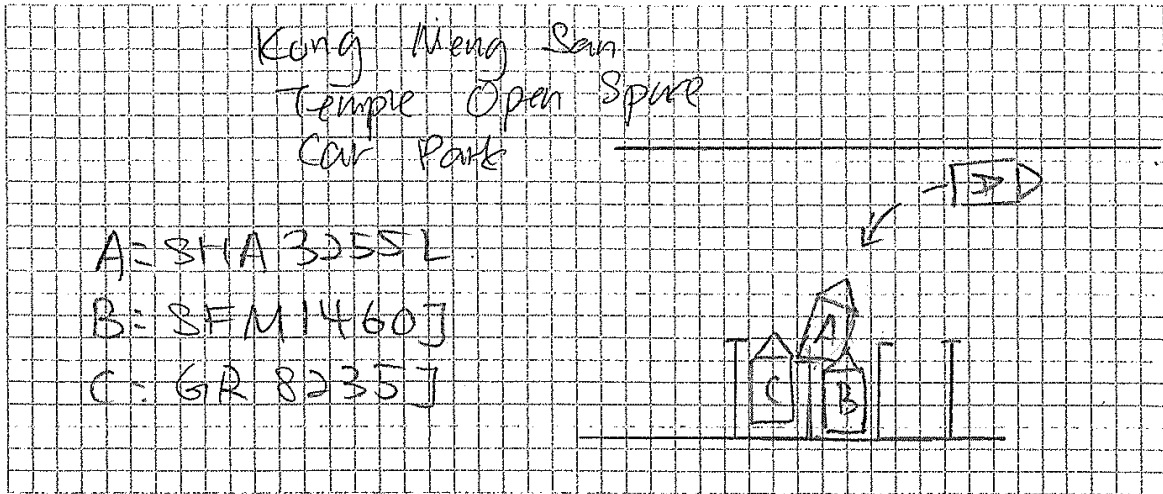 Kong Meng San
Temple Open Space
Car Park
A: SHA 3255L
B: SFM1460J
C: GR 8235J
A
C
B